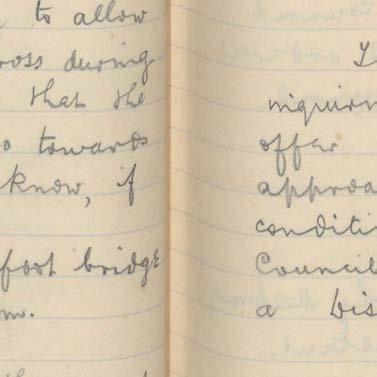 to allow
ross during
that the
towards
know, if
foot bridge
inquirin
offer
approa
conditi
Council
a Dis